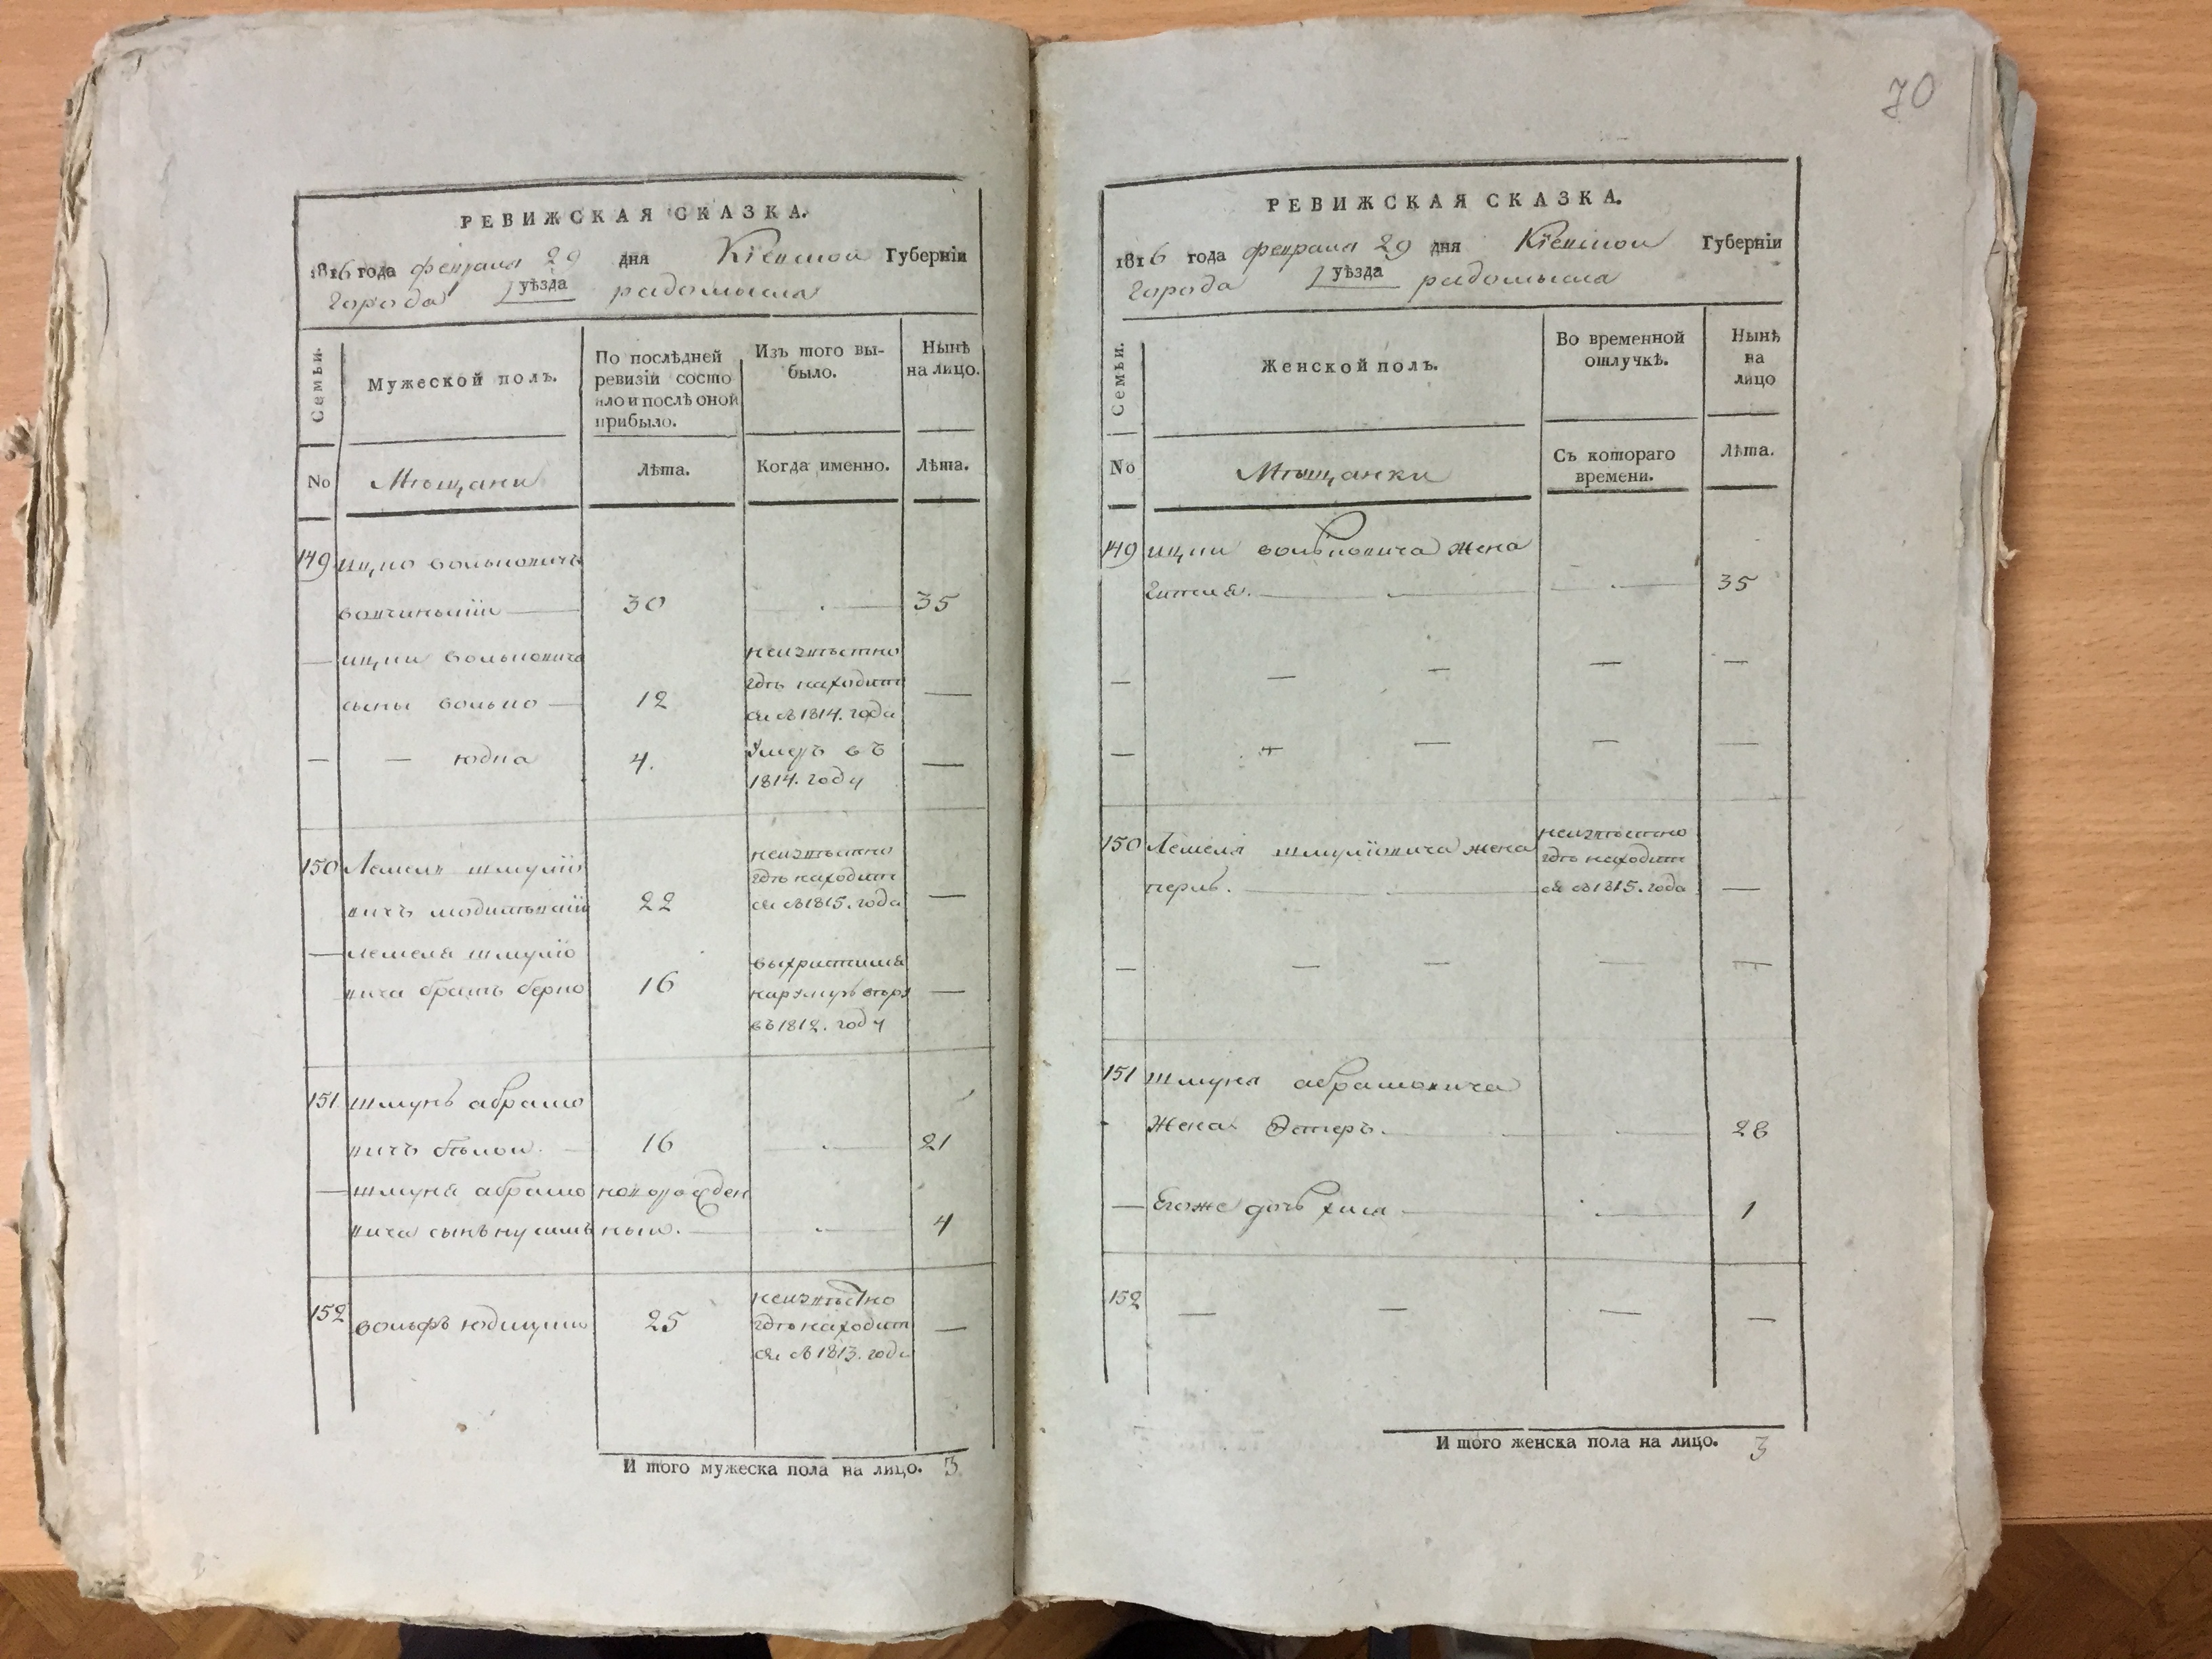 РЕВИЖСКАЯ СКАЗКА.
1816 года февраля 29 дня Кіевской Губерніи
города уѣзда радомысля
Семьи.
Мужеской полъ.
По послѣдней
ревизіи состо
яло и послѣ оной
прибыло.
Изъ того вы-
было.
Нынѣ
на лицо.
No
Мѣщани
Лѣта.
Когда именно.
Лѣта.
149 ицко волькович
30 — 35
— ицки вольковича
неизвѣстно
сыны волько — 12
гдѣ находит
ся съ 1814. года —
— — юдка 4.
Умеръ въ
1814. году —
150 Лемель шмуліо
неизвѣстно
вичъ 22
гдѣ находит
ся съ 1815. года —
— лемеля шмуліо
вича братъ берко 16
въ 1812. году —
151 шмуль абрамо
вичъ бѣлой. 16 — 21
— шмуля абрамо новорожден
вича сынъ нусимъ ный. — 4
152 вольфъ 25
неизвѣстно
гдѣ находит
ся съ 1813. года —
И того мужеска пола на лицо. 3
70
РЕВИЖСКАЯ СКАЗКА.
1816 года февраля 29 дня Кіевской Губерніи
города уѣзда радомысля
Семьи.
Женской полъ.
Во временной
отлучкѣ.
Нынѣ
на
лицо
No
Мѣщанки
Съ котораго
времени.
Лѣта.
149 ицки вольковича жена
гитля. — 35
150 Лемеля шмуліовича жена
неизвѣстно
гдѣ находит
перль. — ся съ 1815. года —
151 шмуля абрамовича
жена Эстеръ. — 28
— Егоже дочь хися — 1
152 — — — —
И того женска пола на лицо. 3